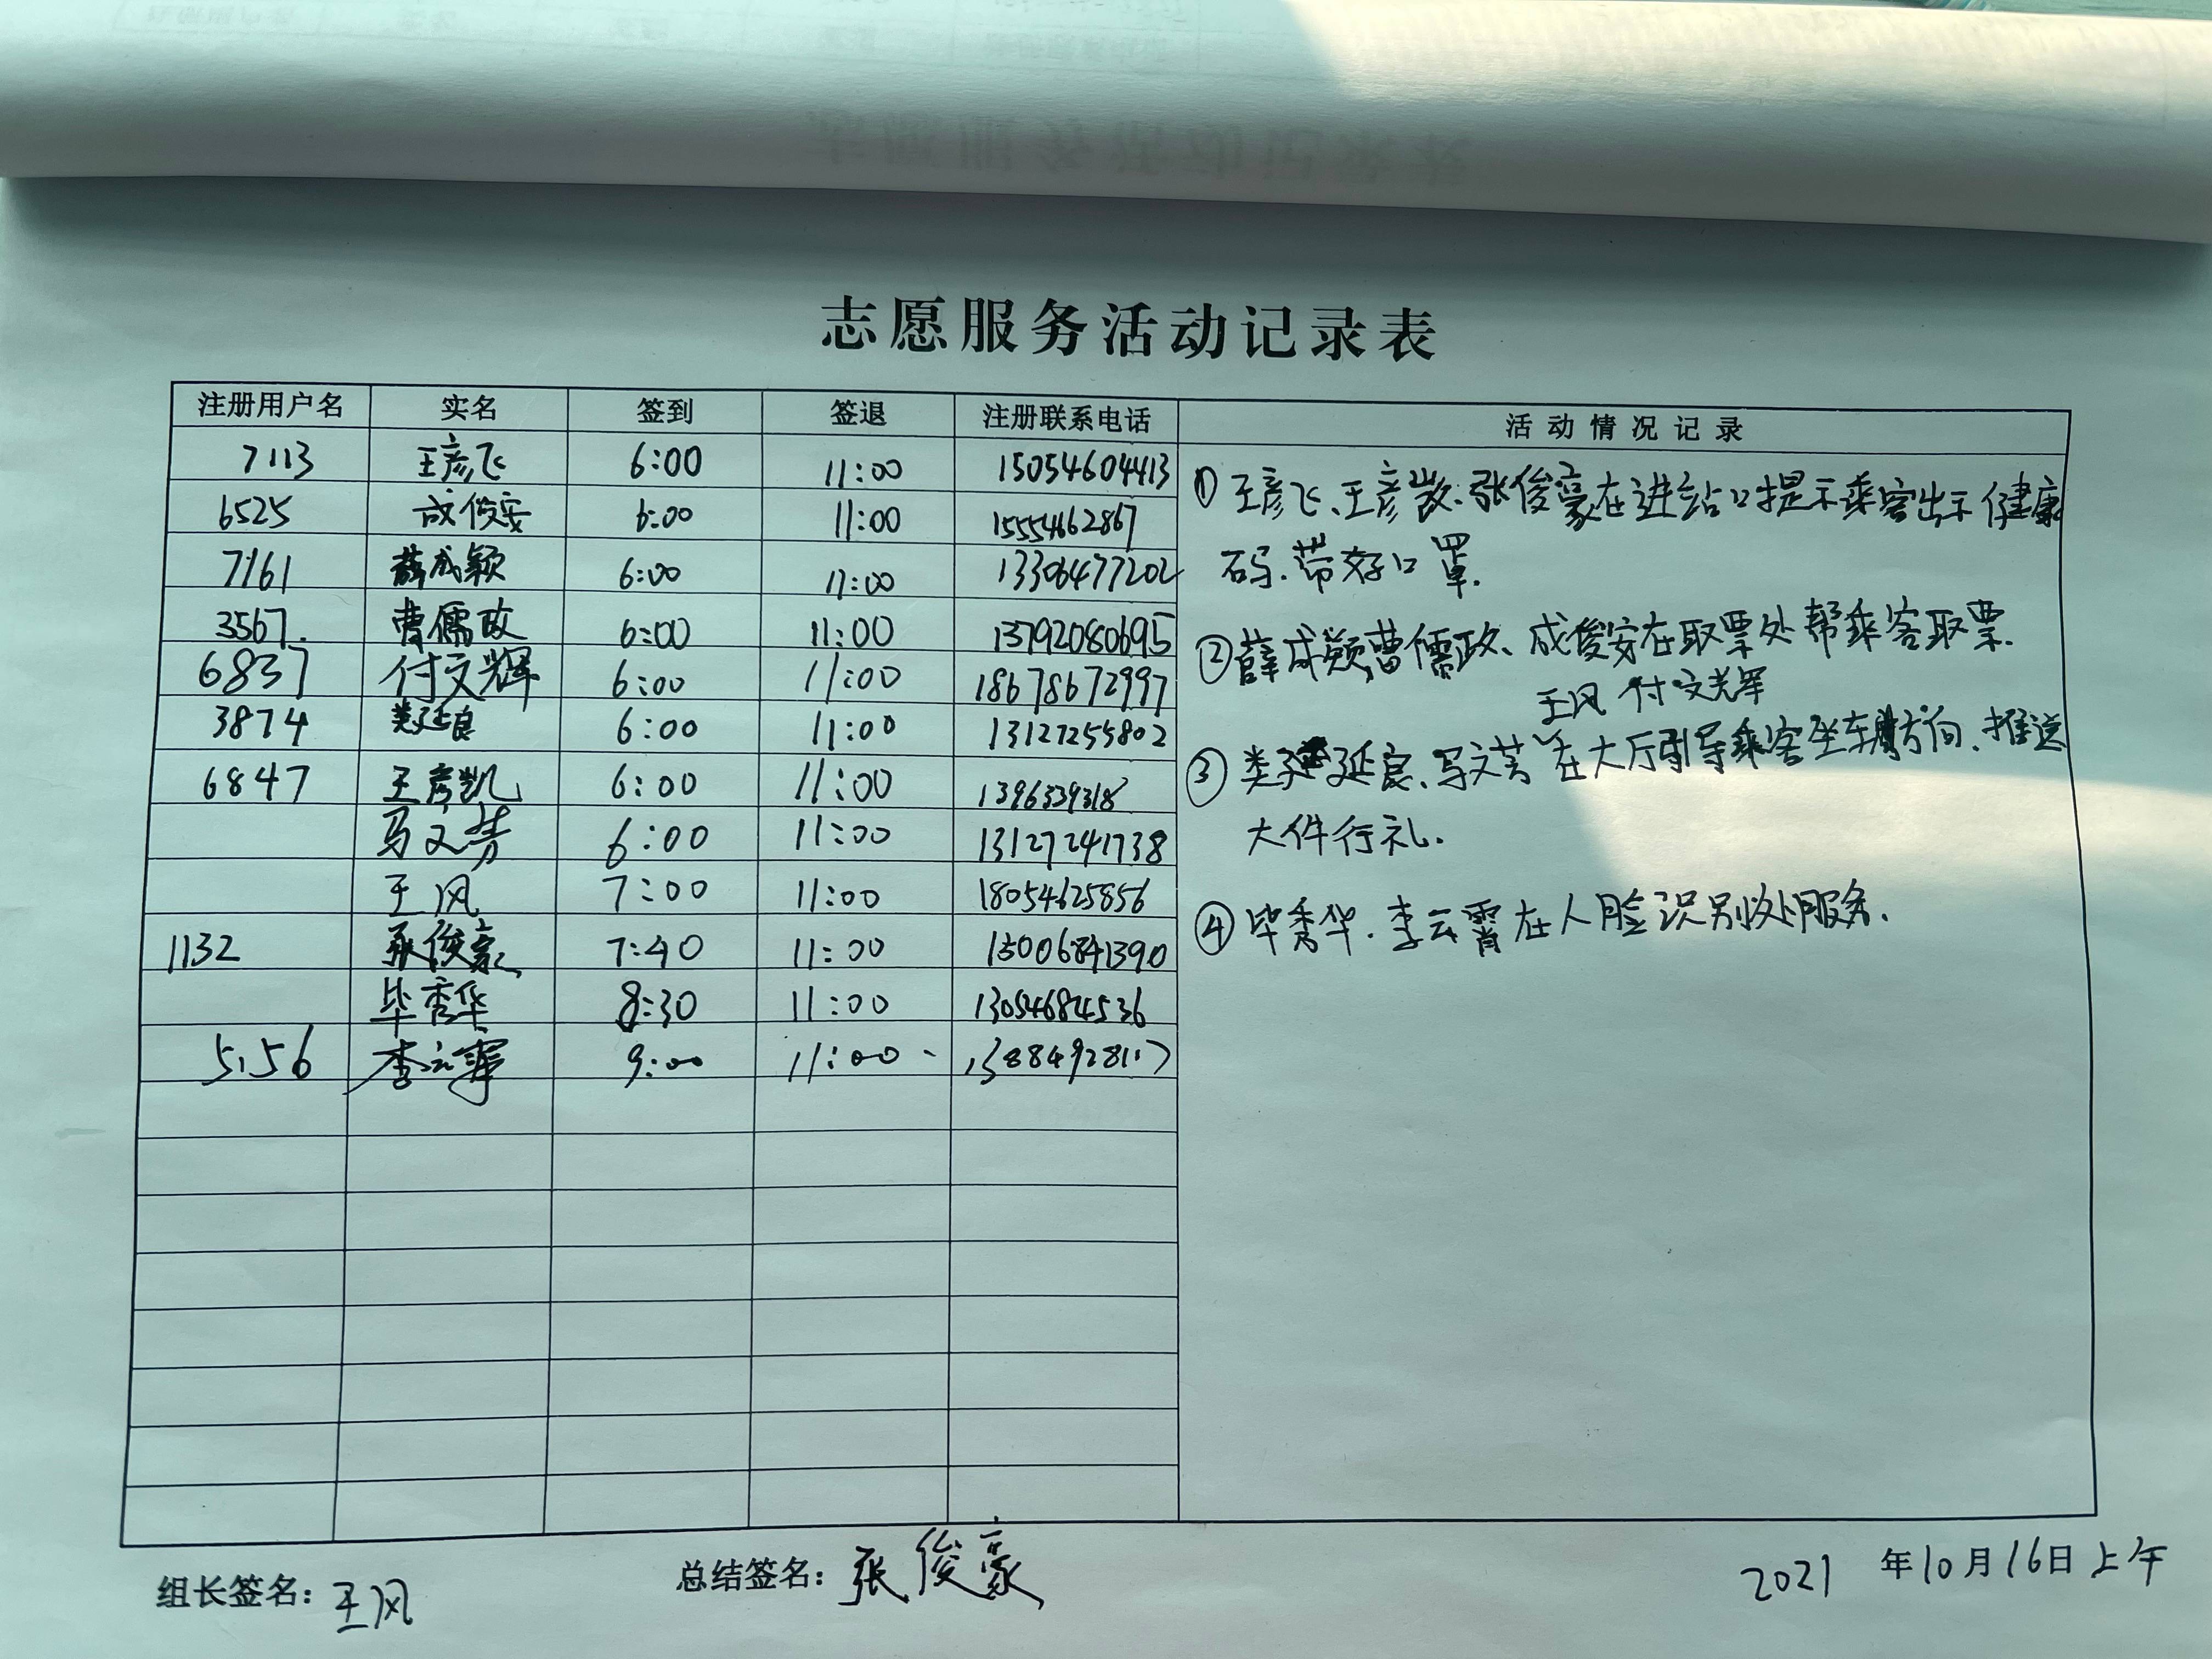 志愿服务活动记录表
注册用户名 实名 签到 签退 注册联系电话 活动情况记录
7113 王彦飞 6:00 11:00 15054604413
6525 成俊安 6:00 11:00 15554662867
7161 薛成颖 6:00 11:00 13306477202
3567. 曹儒政 6:00 11:00 13792080695
6837 付文辉 6:00 11:00 18678672997
3874 类延良 6:00 11:00 13127255802
6847 王彦凯 6:00 11:00 1396339318
马文芳 6:00 11:00 13127241738
王风 7:00 11:00 18054625856
1132 张俊豪 7:40 11:00 15006841390
毕秀华 8:30 11:00 13054684536
5156 李云霄 9:00 11:00 13884928117
①王彦飞、王彦凯、张俊豪在进站口提示乘客出示健康
码、带好口罩.
②薛成颖曹儒政、成俊安在取票处帮乘客取票.
王风 付文辉
③类延良、马文芳在大厅引导乘客坐车方向、推送
大件行礼.
④毕秀华.李云霄在人脸识别处服务.
组长签名：王风 总结签名：张俊豪 2021年10月16日上午